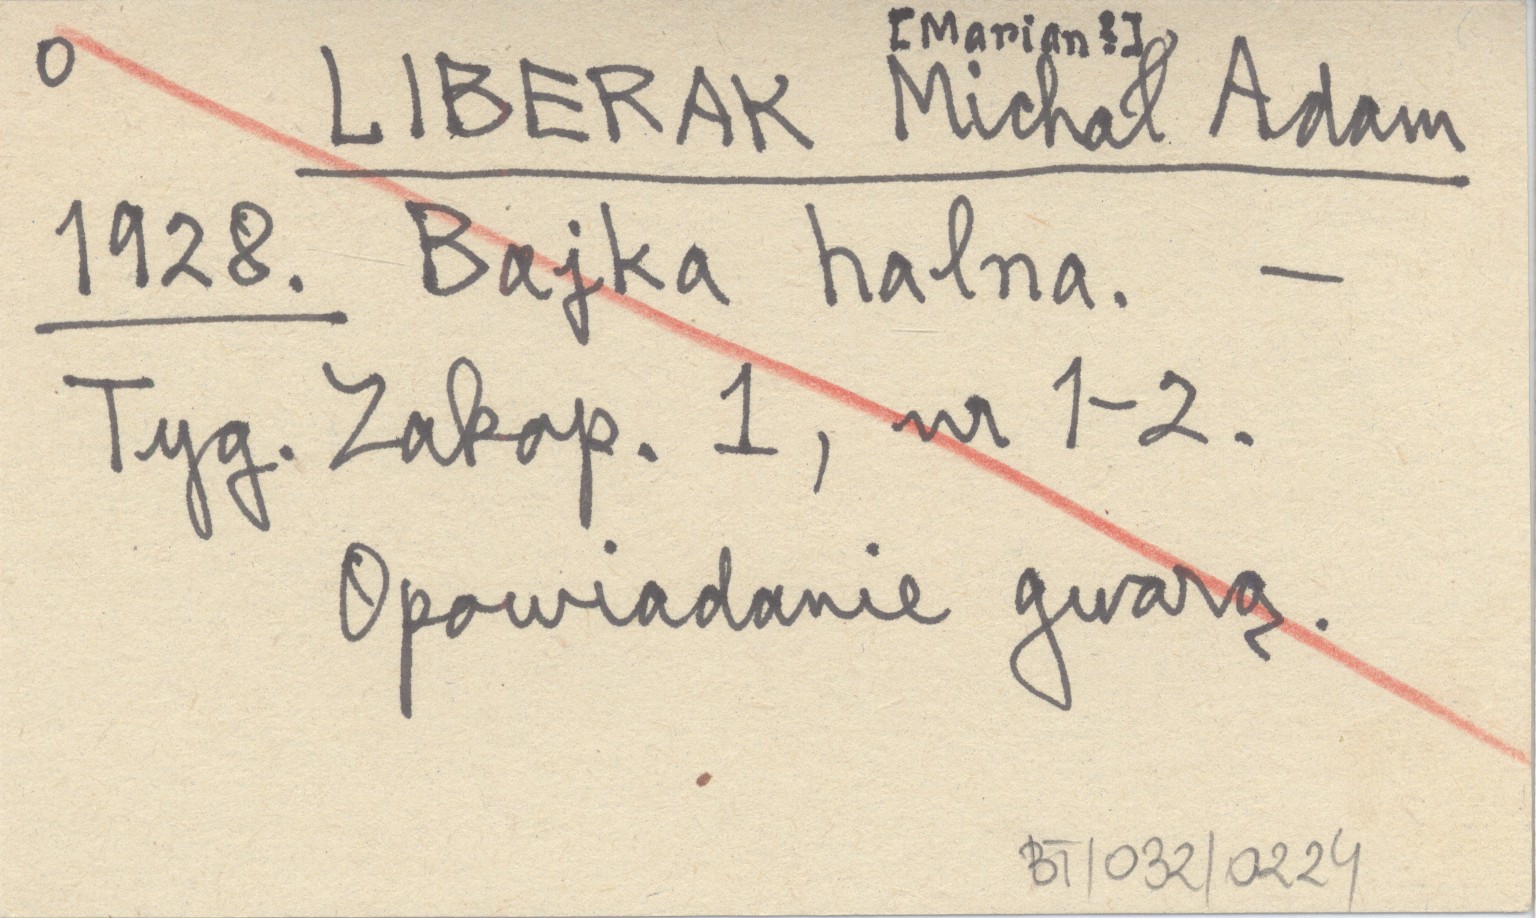 [Marian?]
o LIBERAK Michał Adam
1928. Bajka halna. —
Tyg. Zakop. 1, nr 1-2.
Opowiadanie gwarą.
BT/032/0224